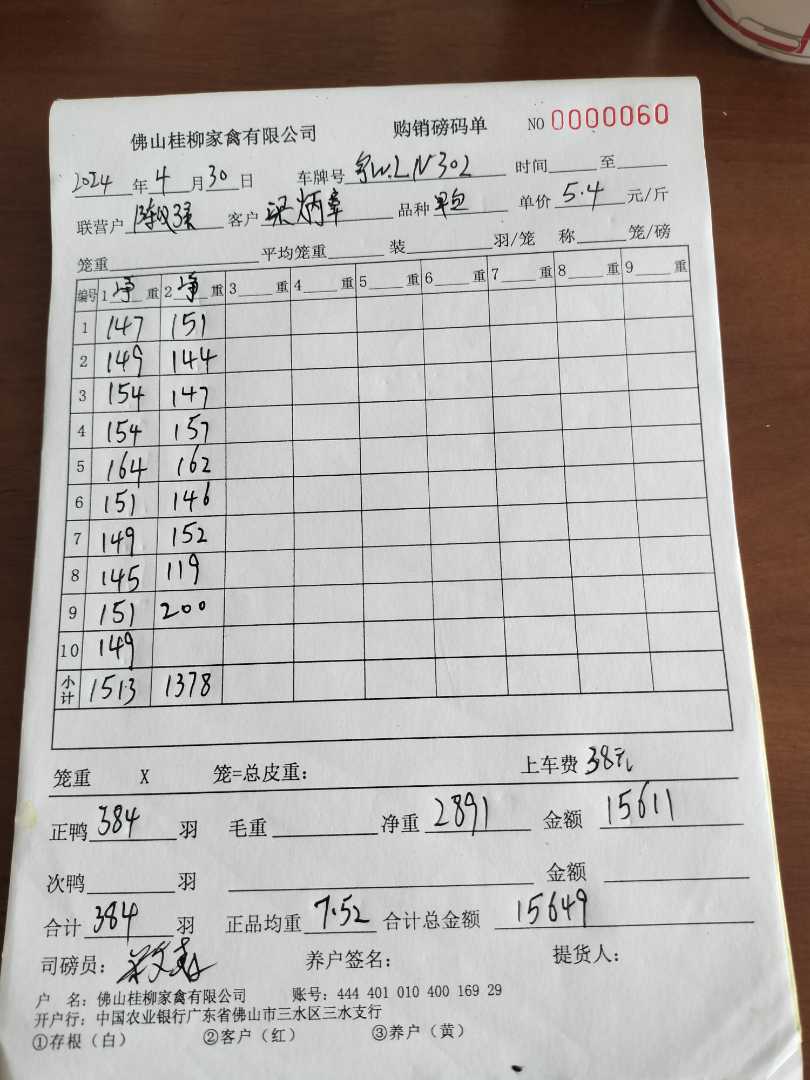 佛山桂柳家禽有限公司 购销磅码单 NO 0000060
2024 年 4 月 30 日 车牌号 粤W.LN302 时间 至
联营户 客户 梁炳章 品种 单价 5.4 元/斤
笼重 平均笼重 装 羽/笼 称 笼/磅
编号 1 净 重 2 净 重 3 重 4 重 5 重 6 重 7 重 8 重 9 重
1 147 151
2 149 144
3 154 147
4 154 157
5 164 162
6 151 146
7 149 152
8 145 119
9 151 200
10 149
小计 1513 1378
笼重 X 笼=总皮重： 上车费 38元
正鸭 384 羽 毛重 净重 2891 金额 15611
次鸭 羽 金额
合计 384 羽 正品均重 7.52 合计总金额 15649
司磅员： 养户签名： 提货人：
户 名：佛山桂柳家禽有限公司 账号：444 401 010 400 169 29
开户行：中国农业银行广东省佛山市三水区三水支行
①存根（白） ②客户（红） ③养户（黄）